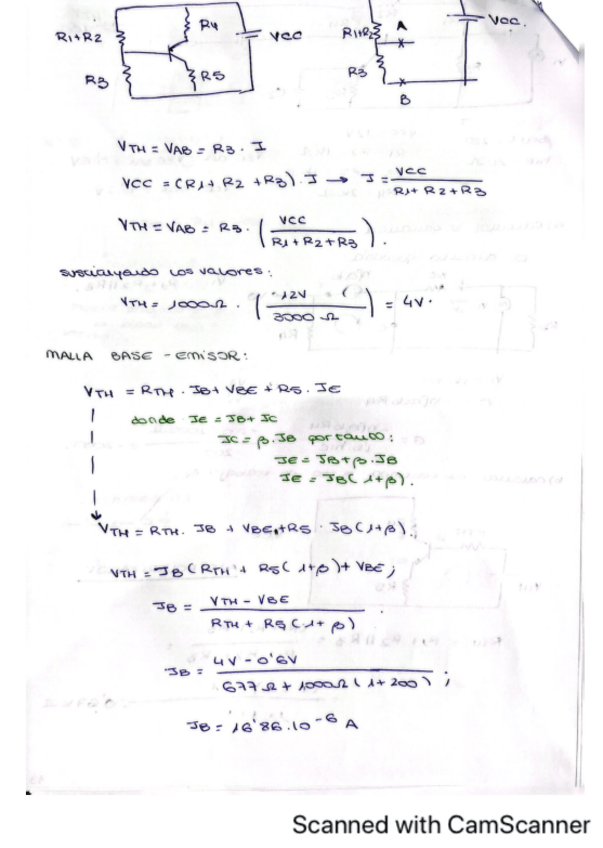 R1+R2 R4 VCC R1+R2 A VCC.
R3 R5 R3
B
VTH = VAB = R3 · I
VCC = (R1 + R2 + R3) · I → I = VCC / R1 + R2 + R3
VTH = VAB = R3 · ( VCC / R1 + R2 + R3 ).
VTH = 1000Ω · ( 12V / 3000 Ω ) = 4V.
MALLA BASE - EMISOR:
VTH = RTH · IB + VBE + R5 · IE
donde IE = IB + IC
IC = β · IB por tanto:
IE = IB + β · IB
IE = IB (1+β).
VTH = RTH · IB + VBE + R5 · IB (1+β).
VTH = IB (RTH + R5 (1+β) + VBE;
IB = VTH - VBE / RTH + R5 (1+β)
IB = 4V - 0'6V / 677 Ω + 1000Ω (1+200) ;
IB = 16'86.10-6 A
Scanned with CamScanner